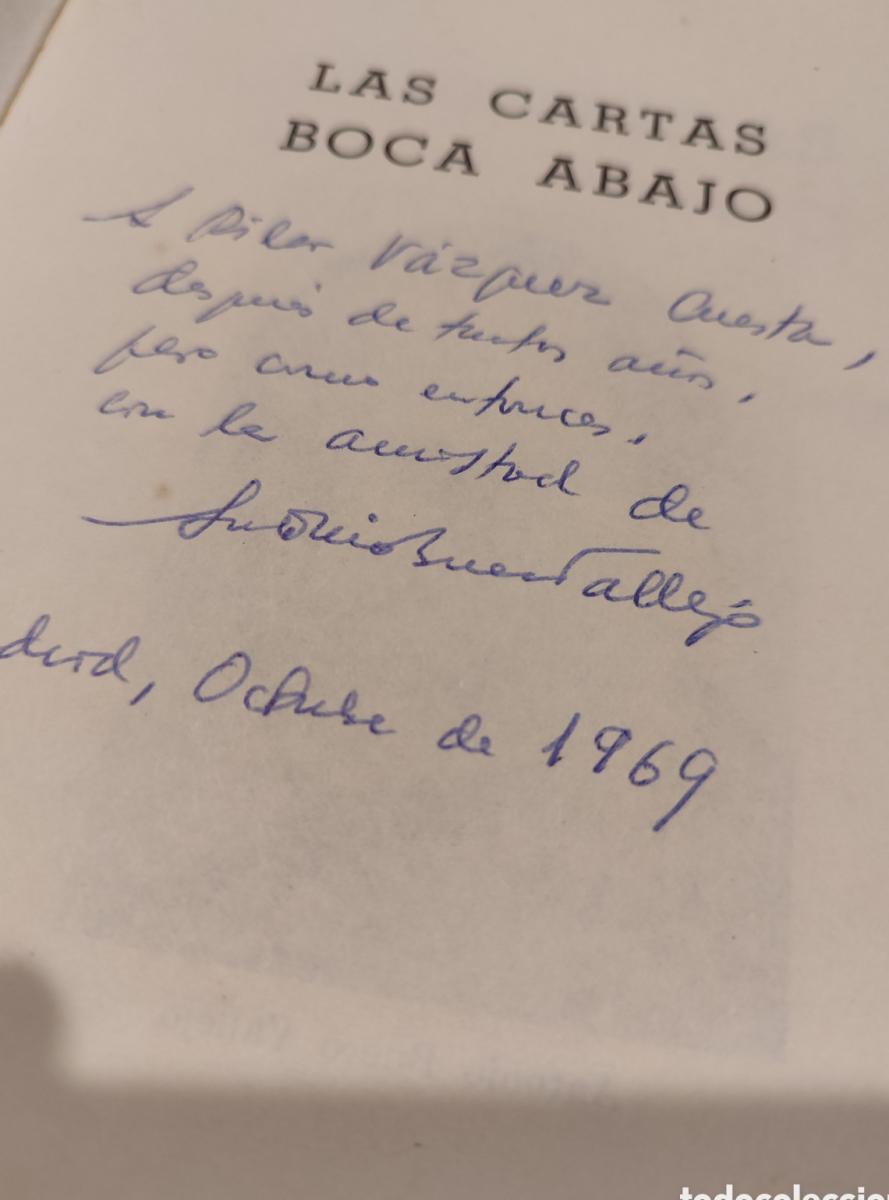 LAS CARTAS
BOCA ABAJO
A Pilar Vázquez Cuesta,
después de tantos años,
pero como entonces,
con la amistad de
Antonio Buero Vallejo
drid, Octubre de 1969
todocoleccion